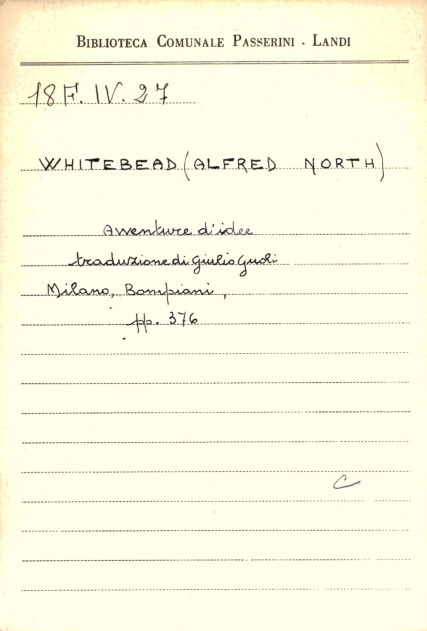 BIBLIOTECA COMUNALE PASSERINI - LANDI
18 F. IV. 27
WHITEBEAD (ALFRED NORTH)
Avventure d'idee
traduzione di Giulio Gnoli
Milano, Bompiani,
pp. 376
C